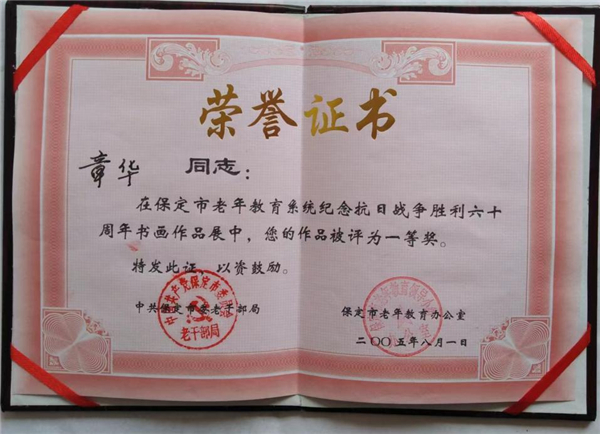 荣誉证书
章华 同志：
在保定市老年教育系统纪念抗日战争胜利六十
周年书画作品展中，您的作品被评为一等奖。
特发此证，以资鼓励。
中共保定市委老干部局
保定市老年教育办公室
二〇〇五年八月一日
中国共产党保定市委员会
老干部局